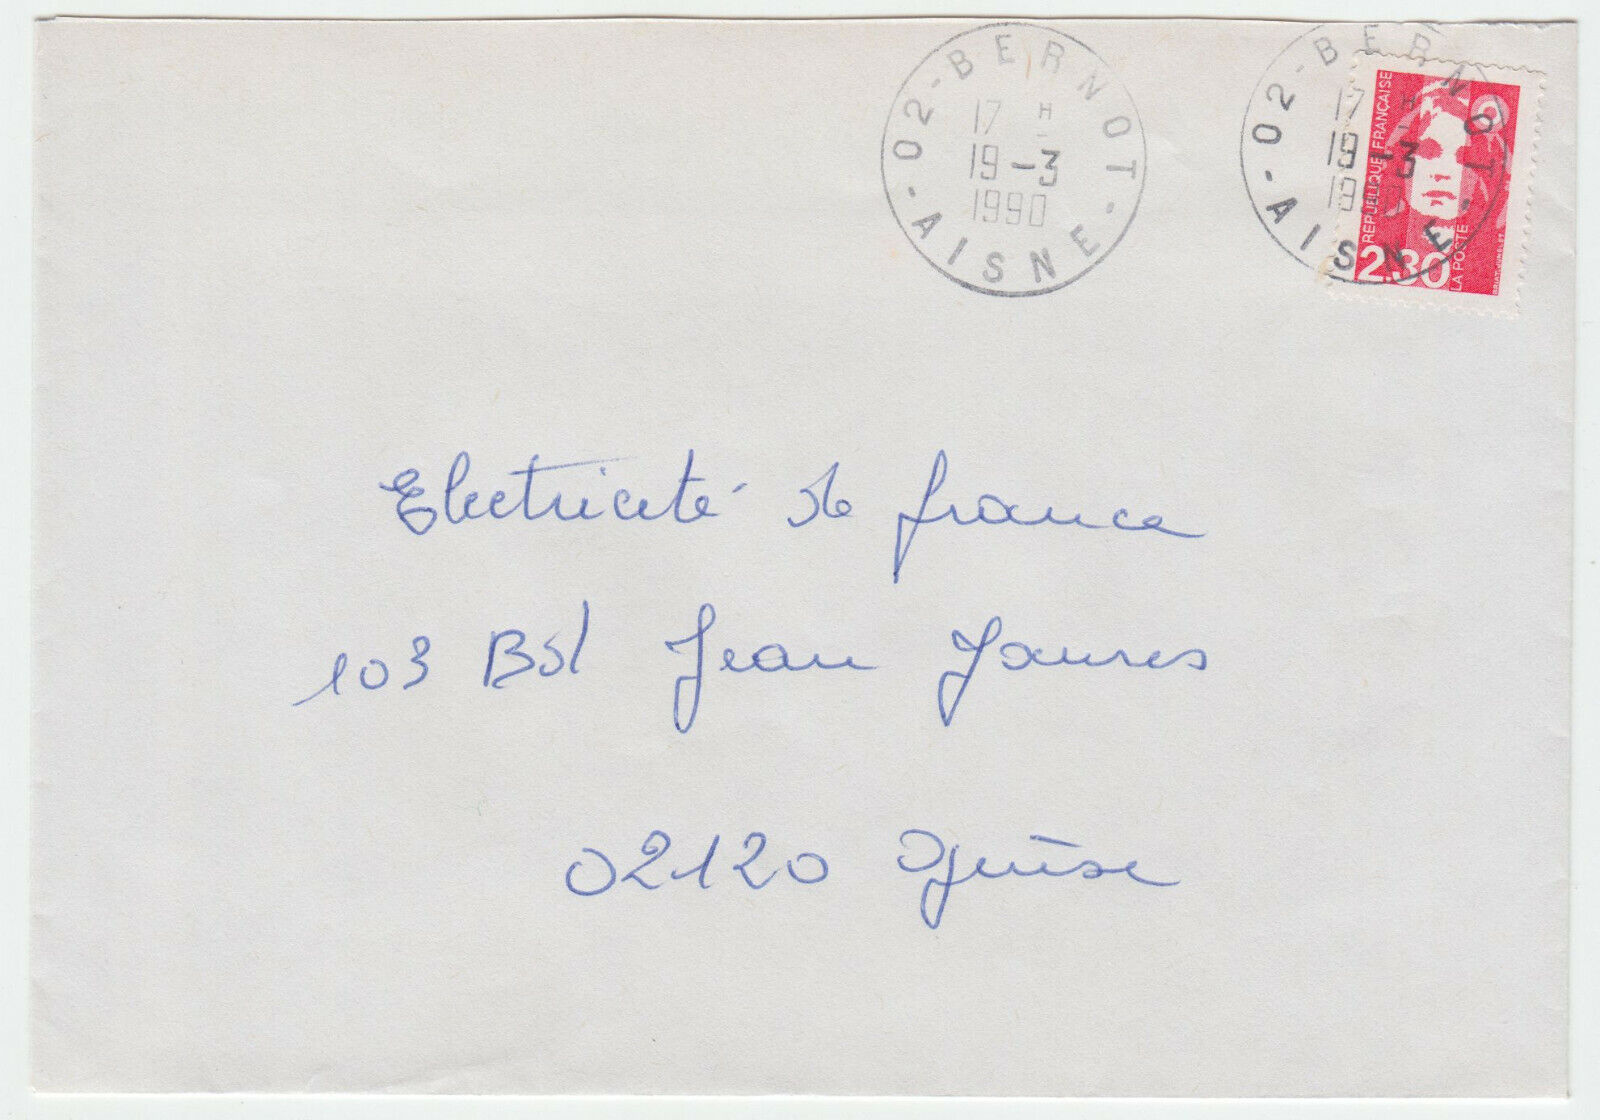 02-BERNOT-AISNE-
17 H
19-3
1990
02-BERNOT-AISNE-
17 H
19-3
REPUBLIQUE FRANÇAISE
2.30
LA POSTE
Electricité de france
103 Bd Jean Jaures
02120 Guise